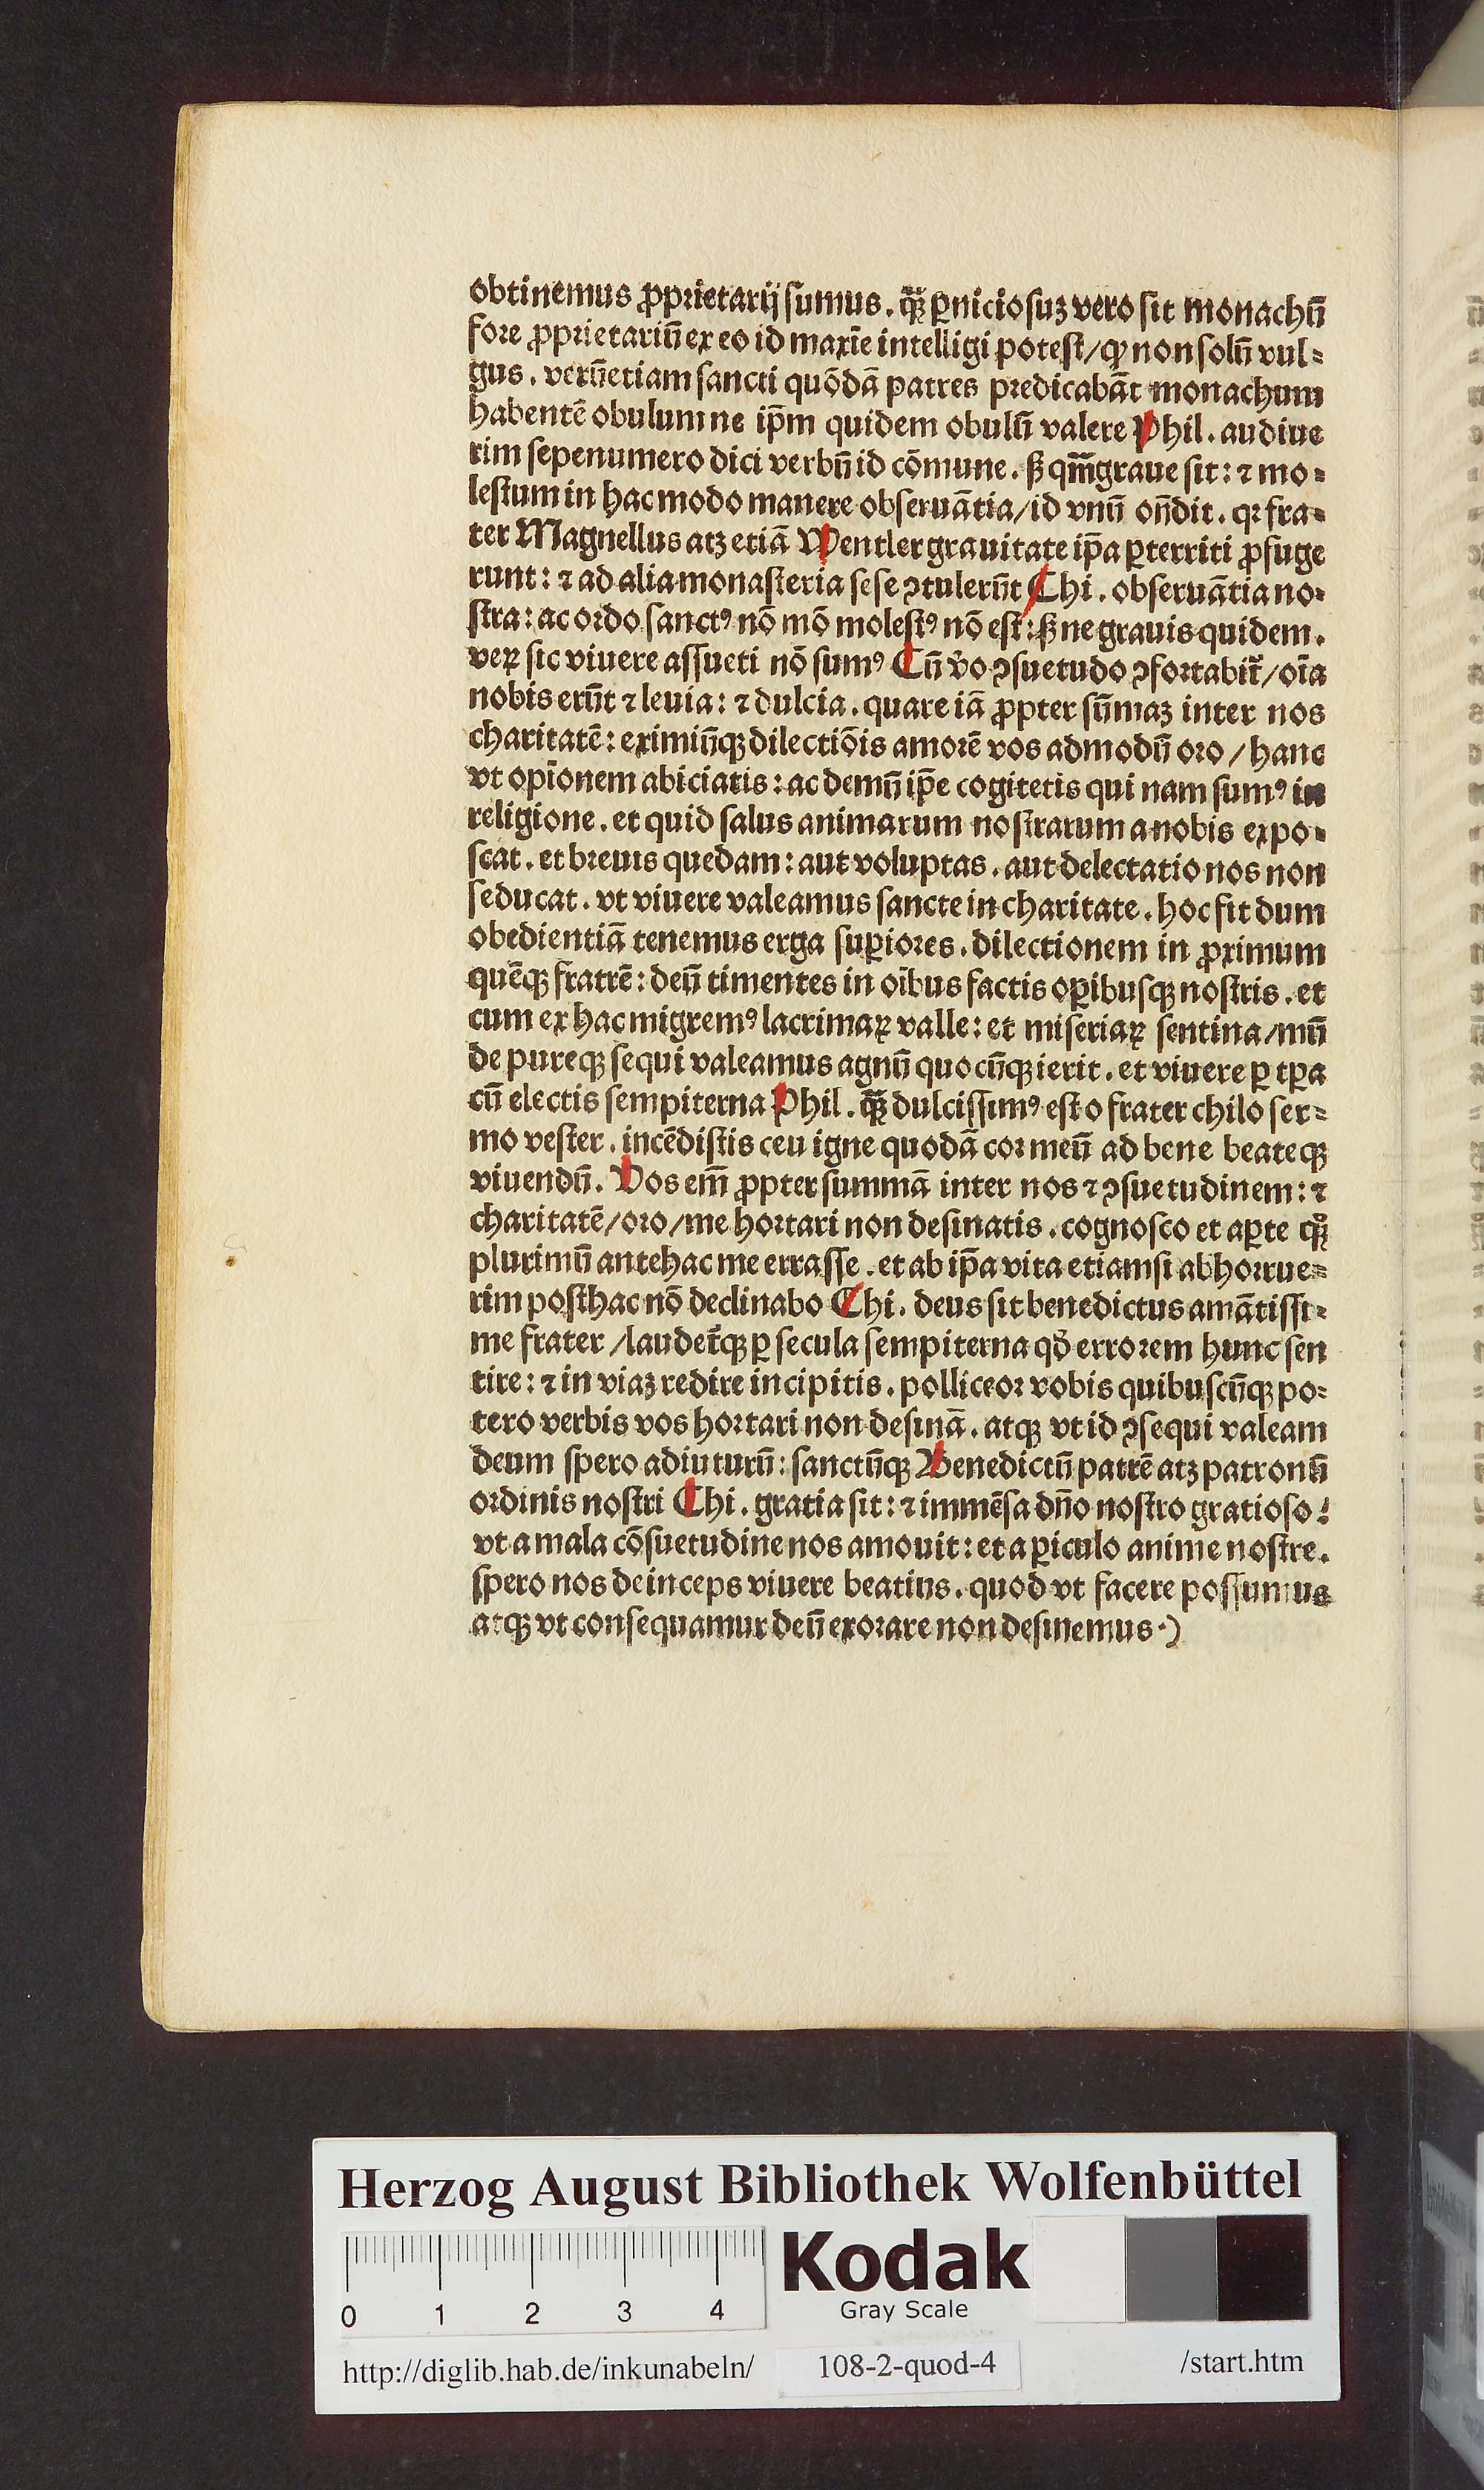 obtinemus ꝓprietarij sumus. qᷓꝫ ꝑniciosuꝫ vero sit monachū
fore ꝓprietariū ex eo id maxīe intelligi potest/ꝙ non solū vul⸗
gus. verūetiam sancti quōdā patres predicabāt monachum
habentē obulum ne ip̄m quidem obulū valere Phil. audiue
rim sepenumero dici verbū id cōmune. sꝫ qm̄ graue sit: ⁊ mo⸗
lestum in hac modo manere obseruātia/id vnū on̄dit. qꝛ fra⸗
ter Magnellus atꝫ etiā Wentler grauitate ip̄a ꝑterriti ꝓfuge
runt: ⁊ ad alia monasteria sese ↄtulerūt Chi. obseruātia no⸗
stra: ac ordo sanctꝰ nō mō molestꝰ nō est: sꝫ ne grauis quidem.
veꝝ sic viuere assueti nō sumꝰ Cū v̄o ↄsuetudo ↄfortabit᷑/oīa
nobis erūt ⁊ leuia: ⁊ dulcia. quare iā ꝓpter sūmaꝫ inter nos
charitatē: eximiūqꝫ dilectiōis amorē vos admodū oro/hanc
vt opīonem abiciatis: ac demū ip̄e cogitetis qui nam sumꝰ in
religione. et quid salus animarum nostrarum a nobis expo⸗
scat. et breuis quedam: aut voluptas. aut delectatio nos non
seducat. vt viuere valeamus sancte in charitate. hoc fit dum
obedientiā tenemus erga suꝑiores. dilectionem in ꝓximum
quēqꝫ fratrē: deū timentes in oībus factis oꝑibusqꝫ nostris. et
cum ex hac migremꝰ lacrimaꝝ valle: et miseriaꝝ sentina/mū
de pureqꝫ sequi valeamus agnū quocūqꝫ ierit. et viuere ꝑ tꝑa
cū electis sempiterna Phil. qᷓꝫ dulcissimꝰ est o frater chilo ser⸗
mo vester. incēdistis ceu igne quodā cor meū ad bene beateqꝫ
viuendū. Vos em̄ ꝓpter summā inter nos ⁊ ↄsuetudinem: ⁊
charitatē/oro/me hortari non desinatis. cognosco et aꝑte qͦꝫ
plurimū antehac me errasse. et ab ip̄a vita etiamsi abhorrue⸗
rim posthac nō declinabo Chi. deus sit benedictus amātissi⸗
me frater/laudet᷑qꝫ ꝑ secula sempiterna qd̄ errorem hunc sen
tire: ⁊ in viaꝫ redire incipitis. polliceor vobis quibuscūqꝫ po⸗
tero verbis vos hortari non desinā. atqꝫ vt id ↄsequi valeam
deum spero adiuturū: sanctūqꝫ Benedictū patrē atꝫ patronū
ordinis nostri Chi. gratia sit: ⁊ immēsa dn̄o nostro gratioso!
vt a mala cōsuetudine nos amouit: et a ꝑiculo anime nostre.
spero nos deinceps viuere beatius. quod vt facere possumus
atqꝫ vt consequamur deū exorare non desinemus·)
Herzog August Bibliothek Wolfenbüttel
0 1 2 3 4
Kodak
Gray Scale
http://diglib.hab.de/inkunabeln/ 108-2-quod-4 /start.htm